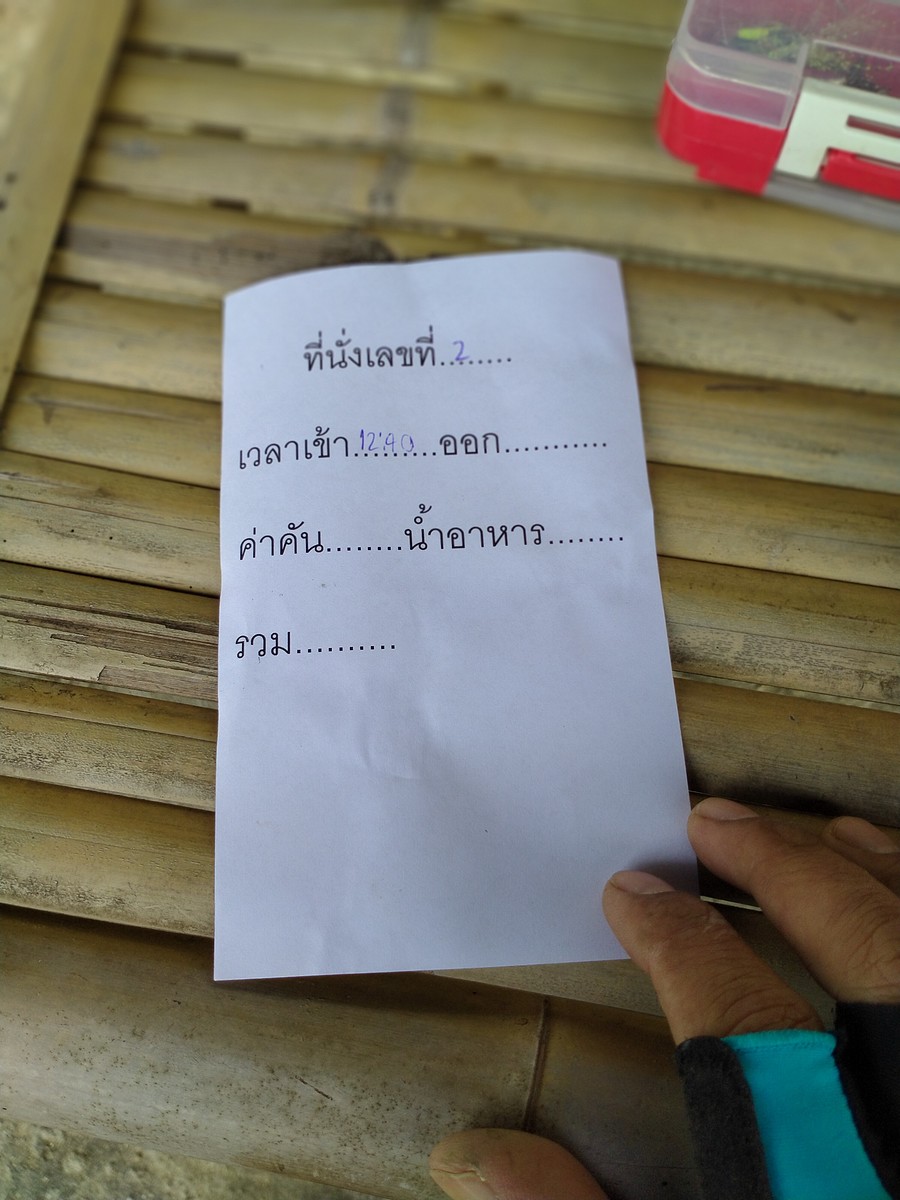 ที่นั่งเลขที่..2......
เวลาเข้า12:40...ออก...........
ค่าคัน........น้ำอาหาร........
รวม..........